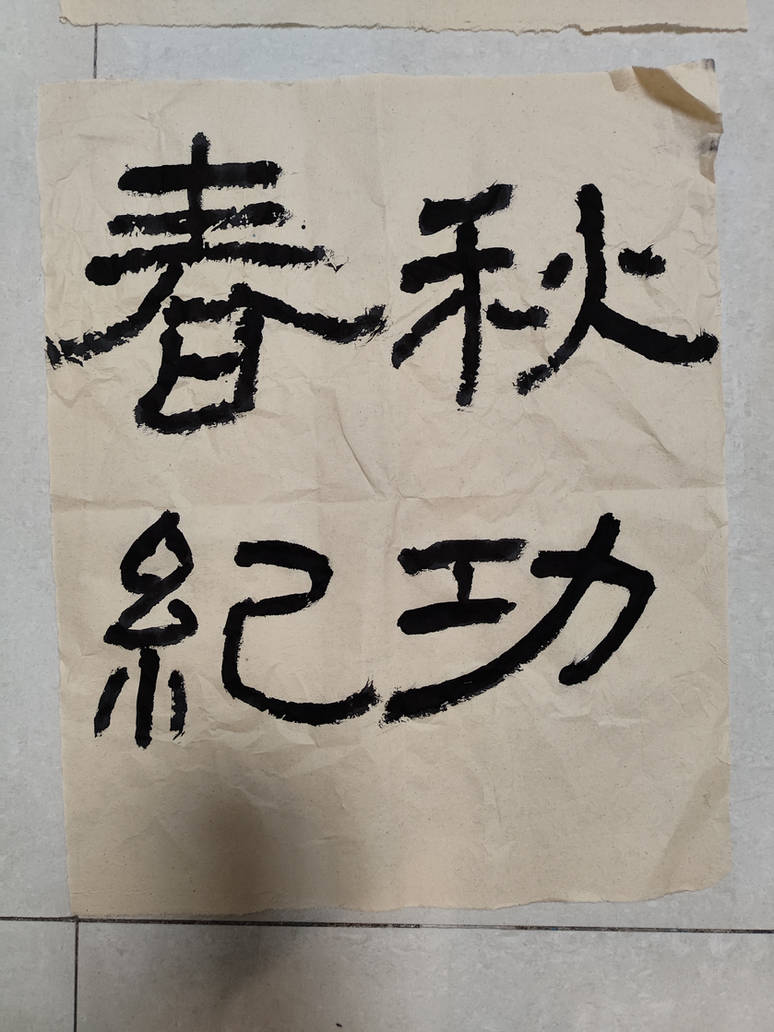 春秋
紀功